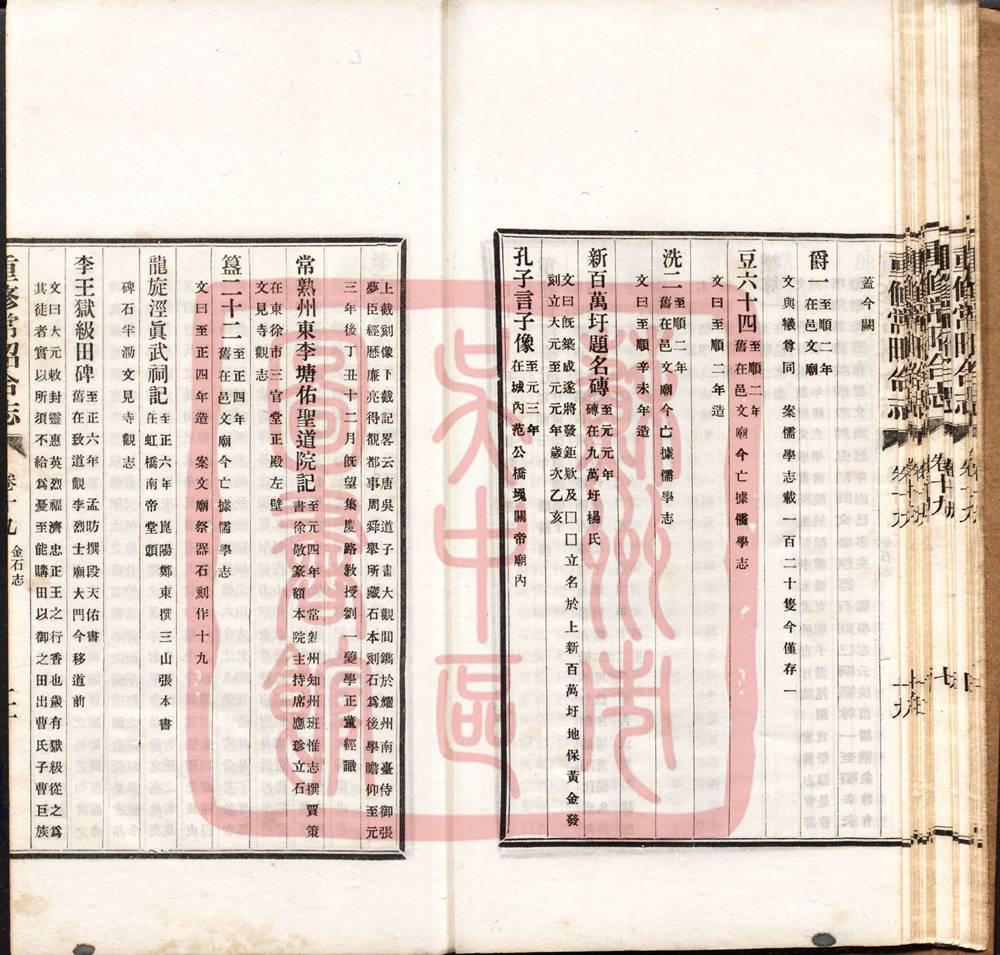 蓋今闕
爵一 至順二年
在邑文廟
文與犧尊同　案儒學志載一百二十隻今僅存一
豆六十四 至順二年
舊在邑文廟今亡據儒學志
文曰至順二年造
洗二 至順二年
舊在邑文廟今亡據儒學志
文曰至順辛未年造
新百萬圩題名磚 至元元年
磚在九萬圩楊氏
文曰旣築成遂將發鉅欵及囗囗立名於上新百萬圩地保黃金發
刻立大元至元元年歲次乙亥
孔子言子像 至元三年
在城內范公橋堍關帝廟內
上截刻像下截記畧云唐吳道子畫大觀間鐫於耀州南臺侍御張
夢臣經歷廉亮得觀都事周舜舉所藏石本刻石爲後學瞻仰至元
三年後丁丑十二月旣望集慶路敎授劉一夔學正董經識
常熟州東李塘佑聖道院記 至元四年　常熟州知州班惟志撰賈策
書徐敬篆額本院主持席應珍立石
在東徐市三官堂正殿左壁
文見寺觀志
簋二十二 至正四年
舊在邑文廟今亡據儒學志
文曰至正四年造　案文廟祭器石刻作十九
龍旋涇眞武祠記 至正六年　崑陽鄭東撰三山張本書
在虹橋南帝堂頭
碑石半泐文見寺觀志
李王獄級田碑 至正六年　孟昉撰段天佑書
舊在致道觀李烈士廟大門今移道前
文曰大元敕封靈惠英烈福濟忠正王之行香也歲有獄級從之爲
其徒者實以所須不給爲憂至能購田以御之田出曹氏子曹巨族
重修常昭合志
卷十九
金石志